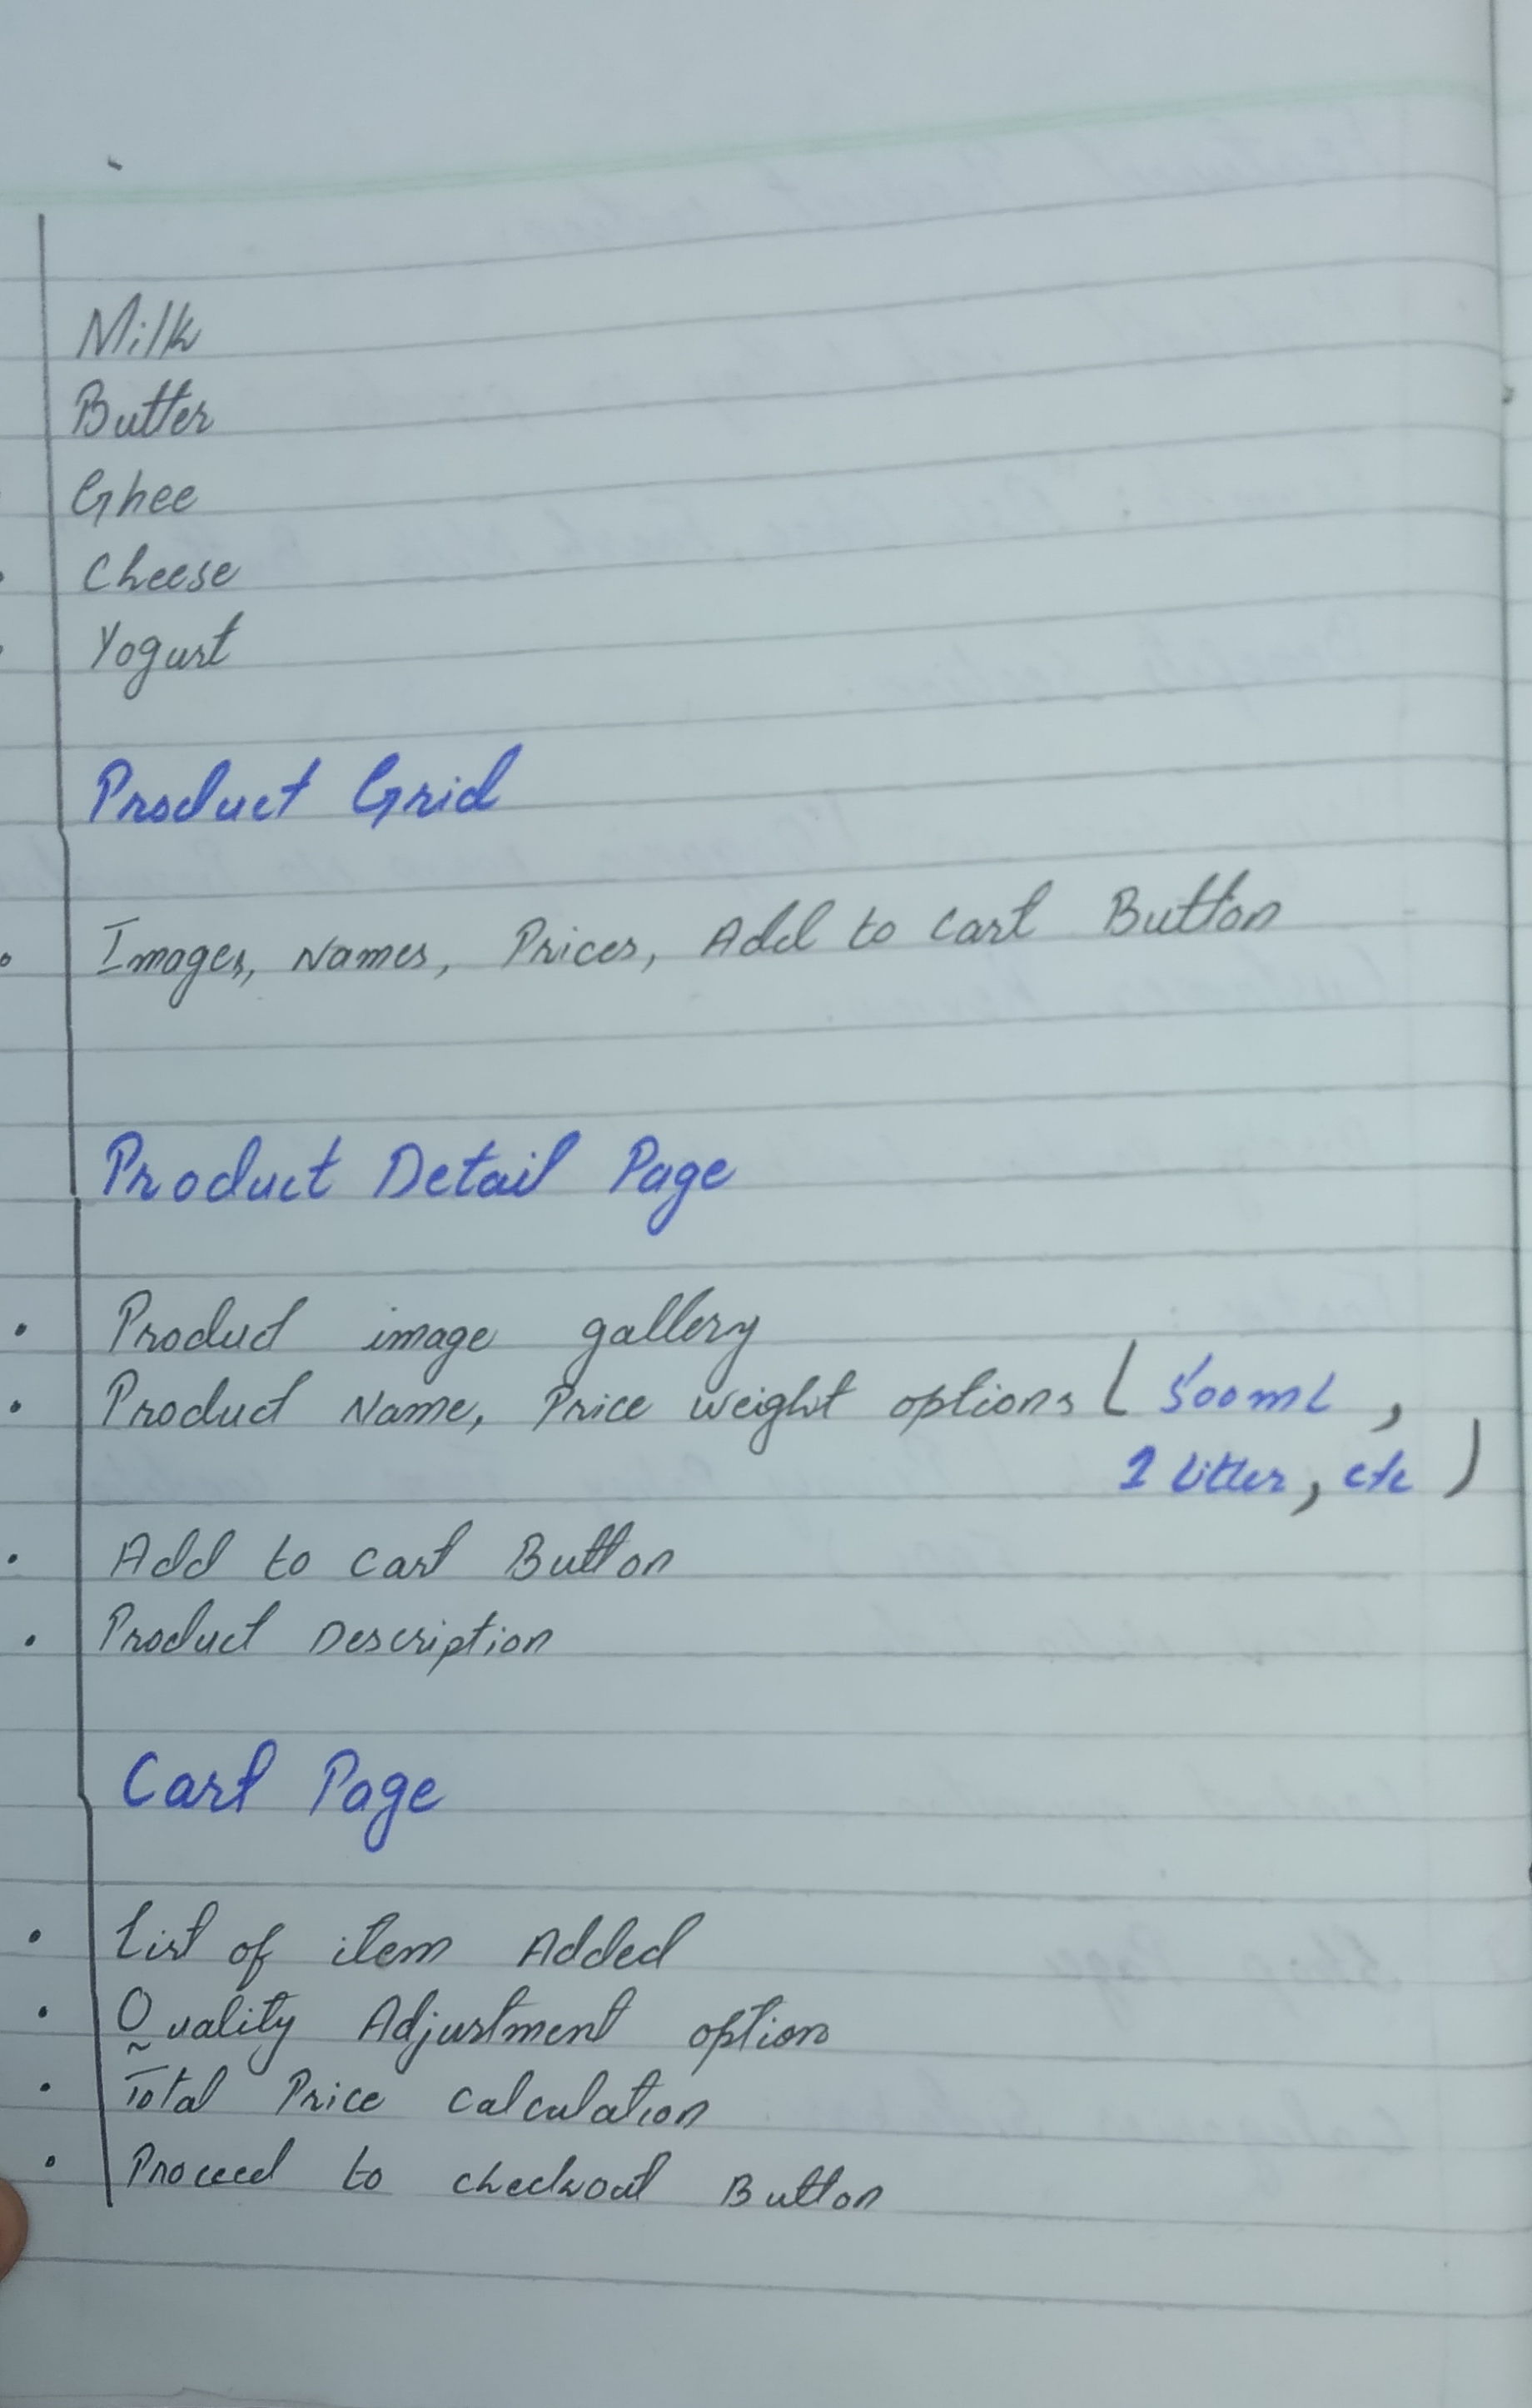 Milk
Butter
Ghee
Cheese
Yogurt
Product Grid
Images, Names, Prices, Add to cart Button
Product Detail Page
Product image gallery
Product Name, Price weight options ( 500ml ,
1 litter, etc )
Add to cart Button
Product Description
Cart Page
List of item Added
Quality Adjustment option
Total Price calculation
Proceed to checkout Button